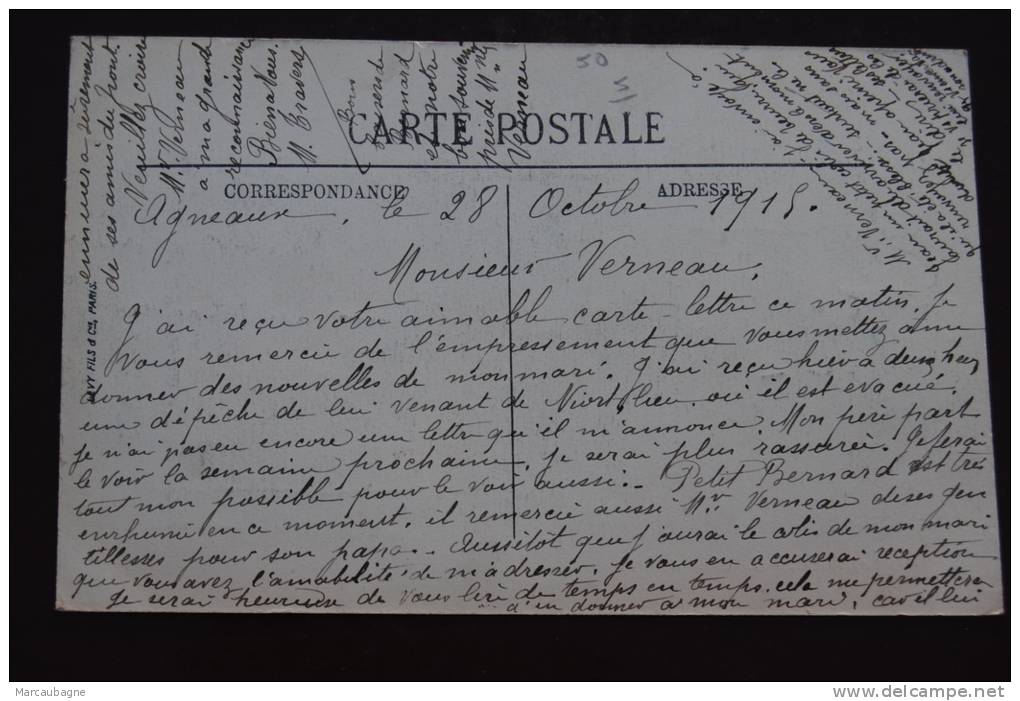 CARTE POSTALE
CORRESPONDANCE
ADRESSE
LEVY FILS & Cie, PARIS.
Agneaux, le 28 Octobre 1915.
Monsieur Verneau,
J'ai reçu votre aimable carte-lettre ce matin. Je
vous remercie de l'empressement que vous mettez à me
donner des nouvelles de mon mari. J'ai reçu hier à deux heures
une dépêche de lui venant de Niort, lieu où il est évacué.
je n'ai pas eu encore une lettre qu'il m'annonce. Mon père part
le voir la semaine prochaine, je serai plus rassurée. Je ferai
tout mon possible pour le voir aussi. - Petit Bernard est très
enrhumé en ce moment. il remercie aussi Mr. Verneau de ses gen
tillesses pour son papa. - Aussitôt que j'aurai le colis de mon mari
que vous avez l'amabilité de m'adresser, je vous en accuserai réception
Je serai heureuse de vous lire de temps en temps, cela me permettera
d'en donner à mon mari, car il lui
ennuiera sûrement
de ses amis du front.
Veuillez croire
Mr. Verneau
à ma grande
reconnaissance
Bien à Vous.
M. Travers
Bons
baisers de
Bernard
et notre
bon souvenir
près de Mme
Verneau
Mr. Verneau